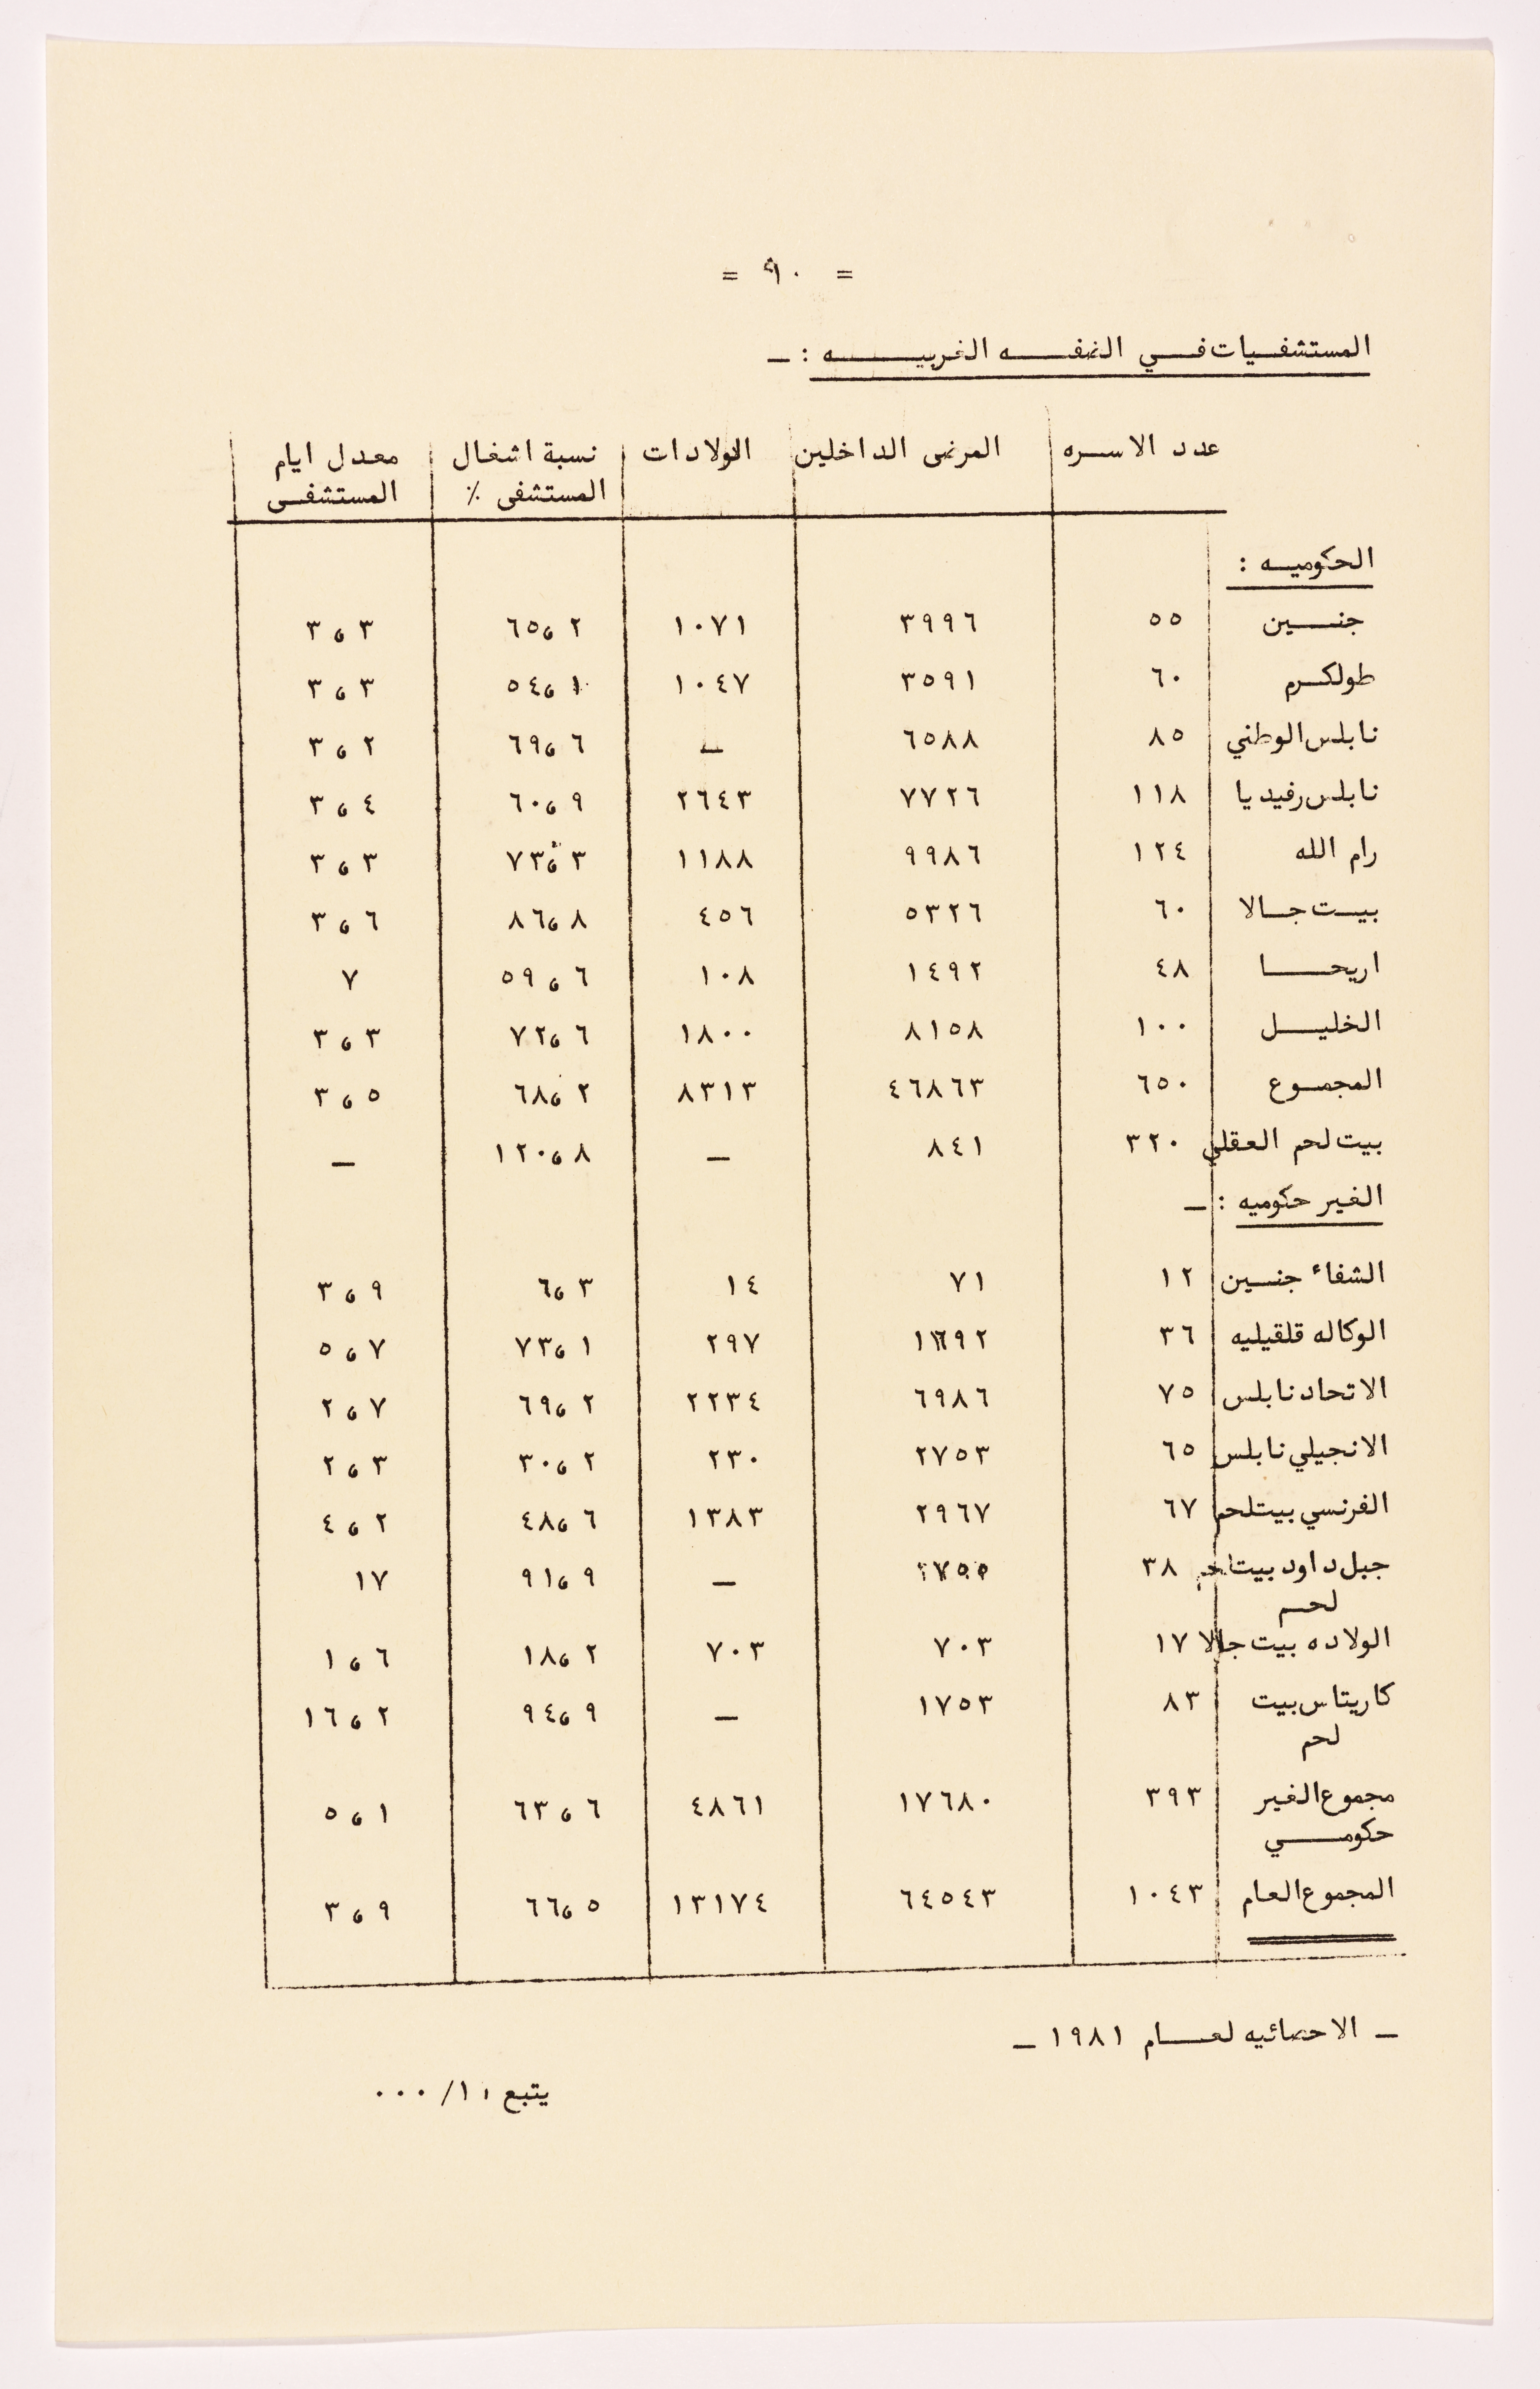 = ٩٠ =
المستشفيات في الضفه الغربيه : ـ
عدد الاسره المرضى الداخلين الولادات نسبة اشغال المستشفى ٪ معدل ايام المستشفى
الحكوميه :
جنين ٥٥ ٣٩٩٦ ١٠٧١ ٦٥،٢ ٣،٣
طولكرم ٦٠ ٣٥٩١ ١٠٤٧ ٥٤،١ ٣،٣
نابلس الوطني ٨٥ ٦٥٨٨ ـ ٦٩،٦ ٣،٢
نابلس رفيديا ١١٨ ٧٧٢٦ ٢٦٤٣ ٦٠،٩ ٣،٤
رام الله ١٢٤ ٩٩٨٦ ١١٨٨ ٧٣،٣ ٣،٣
بيت جالا ٦٠ ٥٣٢٦ ٤٥٦ ٨٦،٨ ٣،٦
اريحا ٤٨ ١٤٩٢ ١٠٨ ٥٩،٦ ٧
الخليل ١٠٠ ٨١٥٨ ١٨٠٠ ٧٢،٦ ٣،٣
المجموع ٦٥٠ ٤٦٨٦٣ ٨٣١٣ ٦٨،٢ ٣،٥
بيت لحم العقلي ٣٢٠ ٨٤١ ـ ١٢٠،٨ ـ
الغير حكوميه : ـ
الشفاء جنين ١٢ ٧١ ١٤ ٦،٣ ٣،٩
الوكاله قلقيليه ٣٦ ٢٩٧ ٧٣،١ ٥،٧
الاتحاد نابلس ٧٥ ٦٩٨٦ ٢٢٣٤ ٦٩،٢ ٢،٧
الانجيلي نابلس ٦٥ ٢٧٥٣ ٢٣٠ ٣٠،٢ ٢،٣
الفرنسي بيتلحم ٦٧ ٢٩٦٧ ١٣٨٣ ٤٨،٦ ٤،٢
جبل داود بيت ٣٨ ـ ٩١،٩ ١٧
لحم
الولاده بيت جالا ١٧ ٧٠٣ ٧٠٣ ١٨،٢ ١،٦
كاريتاس بيت ٨٣ ١٧٥٣ ـ ٩٤،٩ ١٦،٢
لحم
مجموع الغير ٣٩٣ ١٧٦٨٠ ٤٨٦١ ٦٣،٦ ٥،١
حكومي
المجموع العام ١٠٤٣ ٦٤٥٤٣ ١٣١٧٤ ٦٦،٥ ٣،٩
ـ الاحصائيه لعام ١٩٨١ ـ
يتبع ١٠/ ٠٠٠